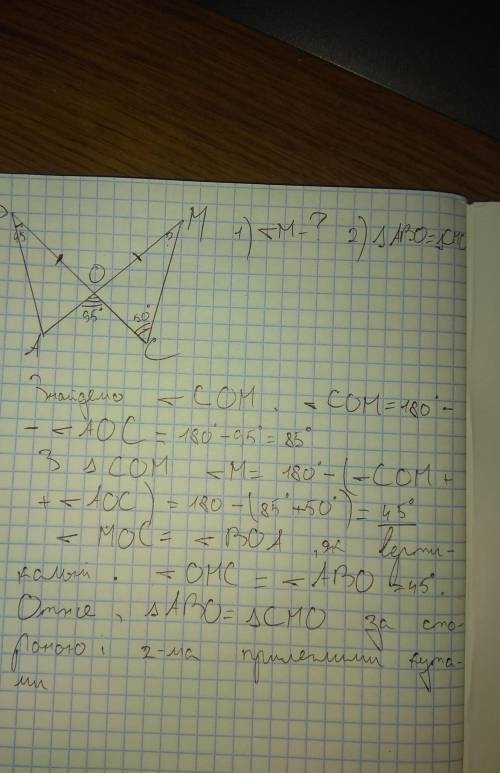 M 1) <M - ? 2) △ABO = △CMO
45
O
95° 50°
A C
Знайдемо < COM. < COM = 180° -
- < AOC = 180° - 95° = 85°
З △COM <M = 180° - (< COM +
+ < AOC) = 180 - (85° + 50°) = 45°
< MOC = < BOA, як верти-
кальні. < OMC = < ABO = 45°.
Отже, △ABO = △CMO за сто-
роною і 2-ма прилеглими кута-
ми